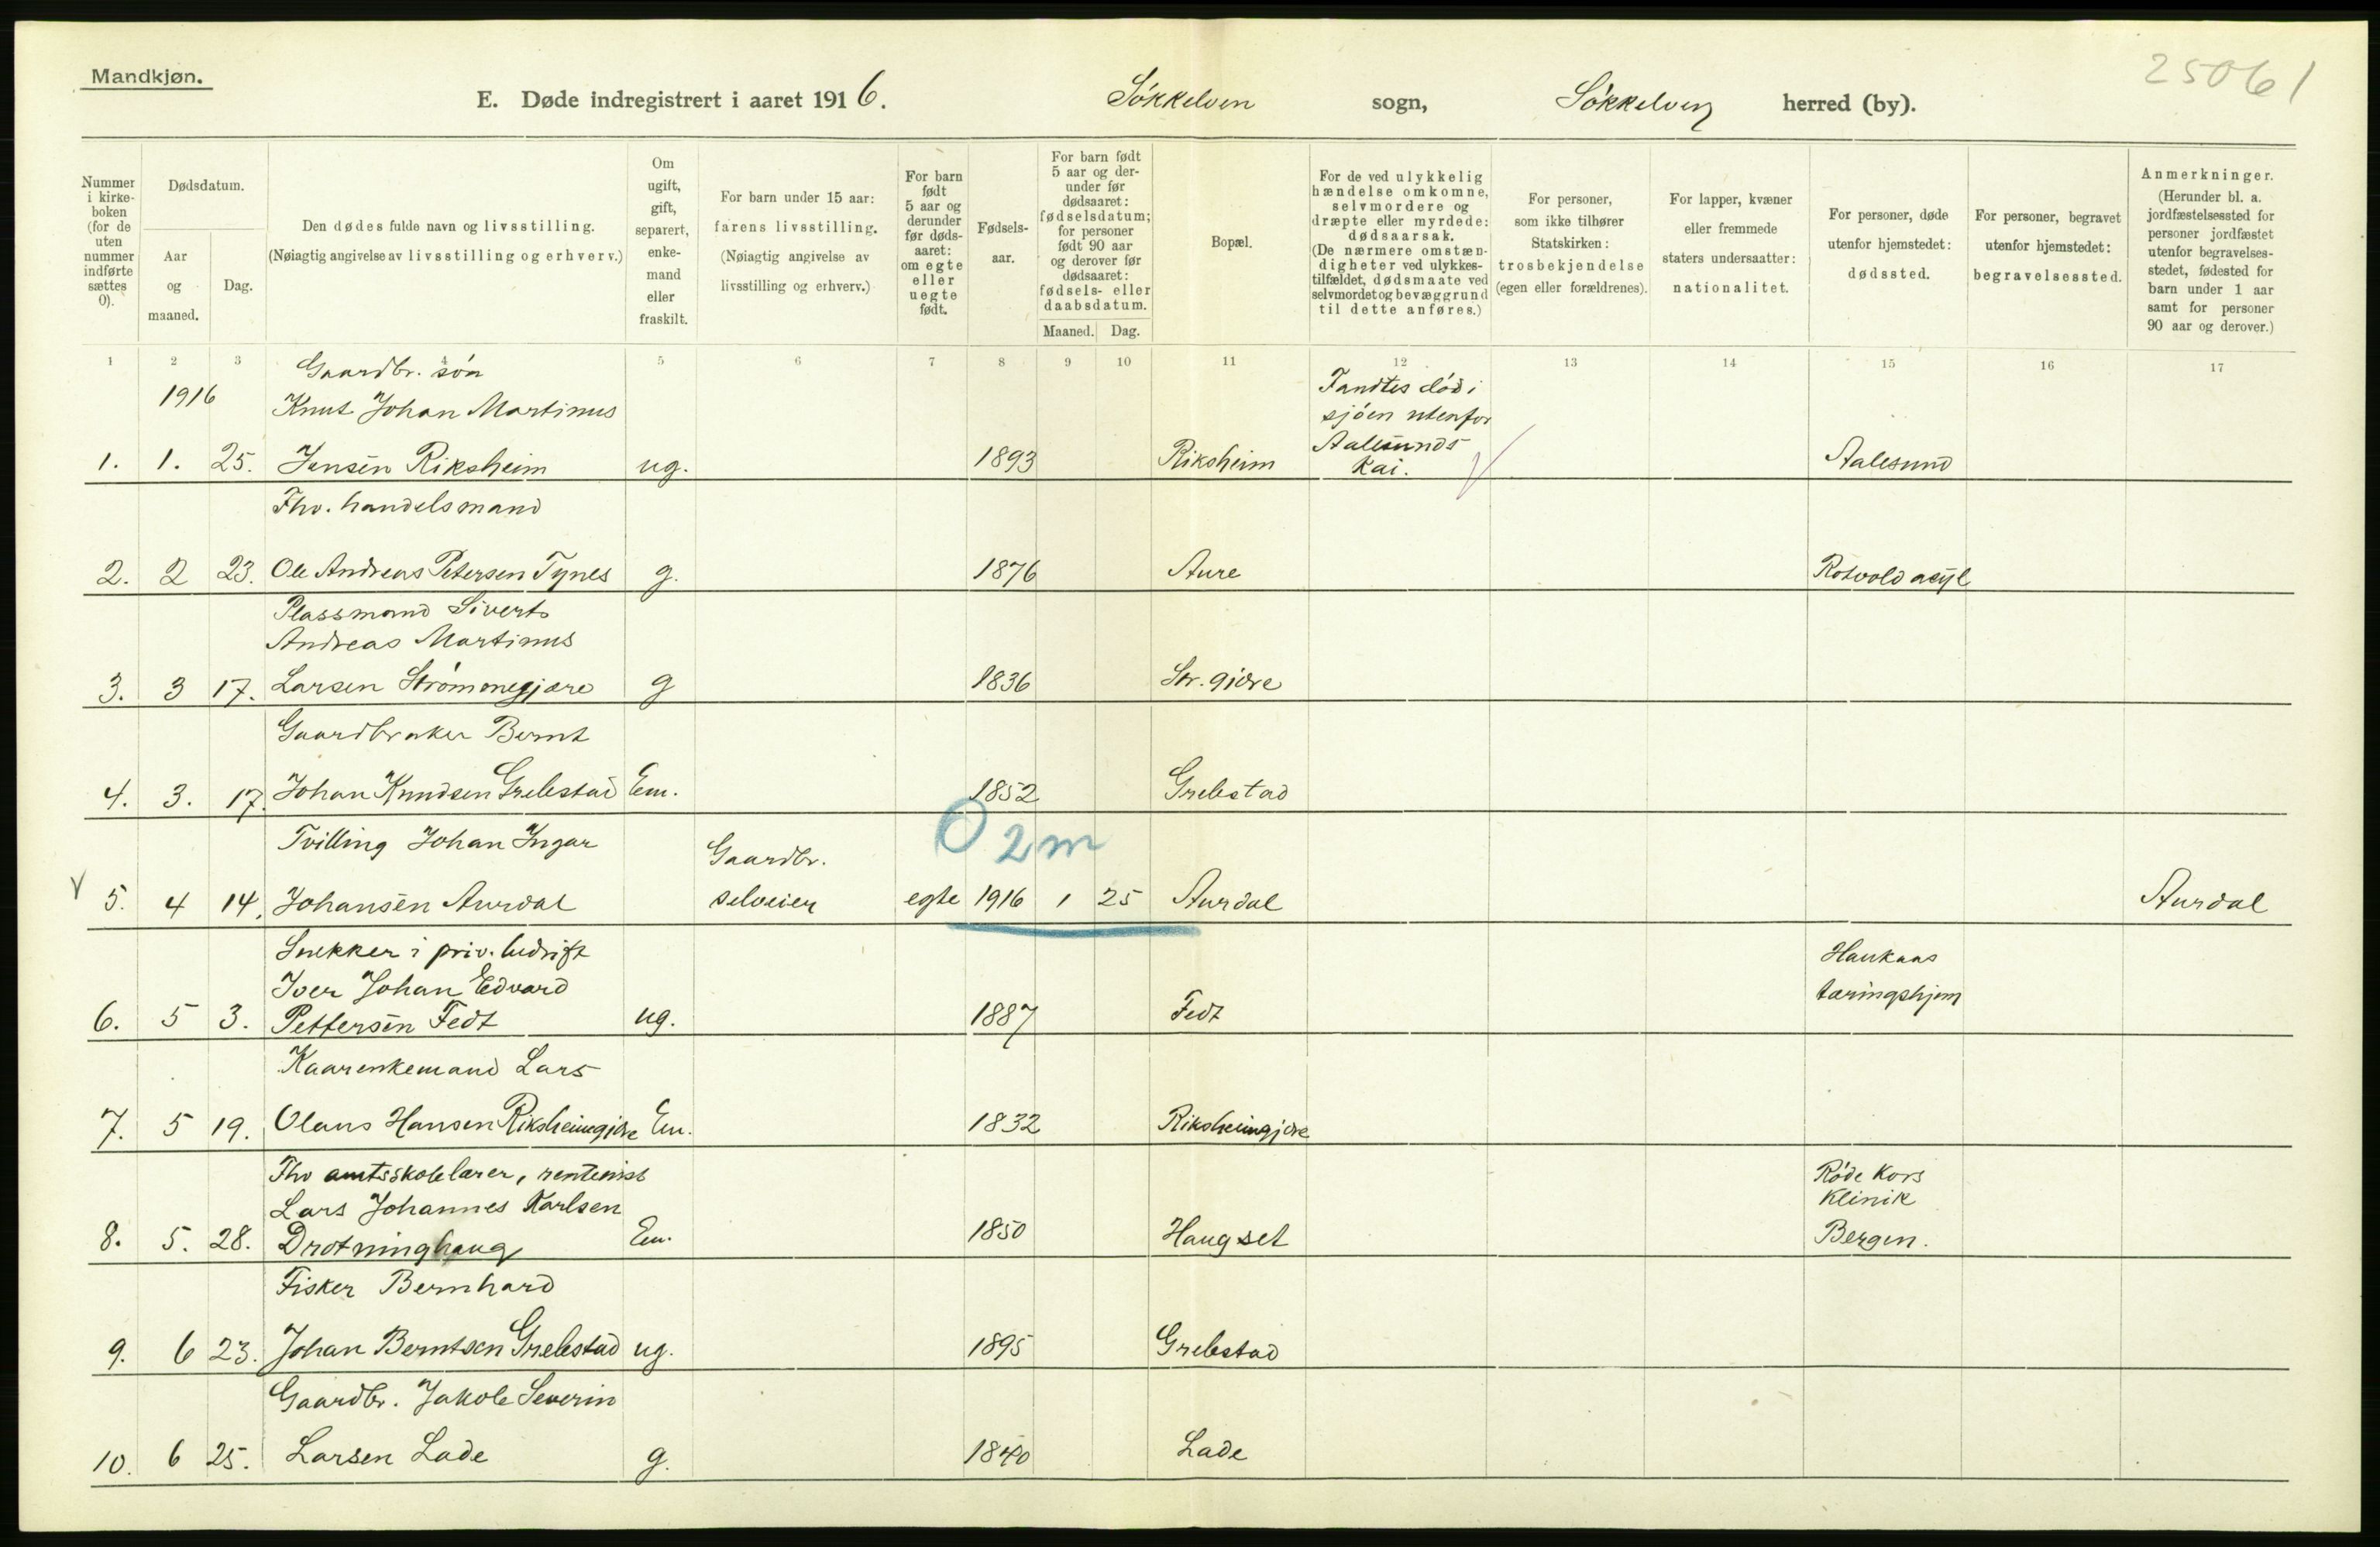 Mandkjøn.
25061
E. Døde indregistrert i aaret 1916. Søkkelven sogn, Søkkelven herred (by).
Nummer i kirkeboken (for de uten nummer indførte sættes 0).
Dødsdatum.
Aar og maaned.
Dag.
Den dødes fulde navn og livsstilling.
(Nøiagtig angivelse av livsstilling og erhverv.)
Om ugift, gift, separert, enkemand eller fraskilt.
For barn under 15 aar:
farens livsstilling.
(Nøiagtig angivelse av livsstilling og erhverv.)
For barn født 5 aar og derunder før dødsaaret: om egte eller uegte født.
Fødselsaar.
For barn født 5 aar og derunder før dødsaaret: fødselsdatum; for personer født 90 aar og derover før dødsaaret: fødsels- eller daabsdatum.
Maaned. Dag.
Bopæl.
For de ved ulykkelig hændelse omkomne, selvmordere og dræpte eller myrdede: dødsaarsak.
(De nærmere omstændigheter ved ulykkestilfældet, dødsmaate ved selvmordet og bevæggrund til dette anføres.)
For personer, som ikke tilhører Statskirken: trosbekjendelse (egen eller forældrenes).
For lapper, kvæner eller fremmede staters undersaatter: nationalitet.
For personer, døde utenfor hjemstedet: dødssted.
For personer, begravet utenfor hjemstedet: begravelsessted.
Anmerkninger.
(Herunder bl. a. jordfæstelsessted for personer jordfæstet utenfor begravelsesstedet, fødested for barn under 1 aar samt for personer 90 aar og derover.)
1 2 3 4 5 6 7 8 9 10 11 12 13 14 15 16 17
Gaardbr. søn Fandtes død i
1916 Knut Johan Martinus sjøen utenfor
Aalesunds
1. 1. 25. Jensen Riksheim ug. 1893 Riksheim Kai. Aalesund
Fhv. handelsmand
2. 2 23. Ole Andreas Petersen Tynes g. 1876 Aure Rotvold asyl
Plassmand Siverts
Andreas Martinus
3. 3 17. Larsen Strømmegjære g 1836 Str. gjære
Gaardbruker Bernt
4. 3. 17. Johan Knudsen Grebstad Em. 1852 Grebstad
O 2m
Tvilling Johan Ingar Gaardbr.
V 5. 4 14. Johansen Aurdal selveier egte 1916 1 25 Aurdal Aurdal
Snekker i priv. bedrift Haukaas
Iver Johan Edvard tæringshjem
6. 5 3. Pettersen Fedt ug. 1887 Fedt
Kaarenkemand Lars
7. 5 19. Olaus Hansen Riksheimgjære Em. 1832 Riksheimgjære
Fhv amtsskolelærer, rentenist Røde Kors
Lars Johannes Karlsen Klinik
8. 5. 28. Drotninghaug Em. 1850 Haugset Bergen.
Fisker Bernhard
9. 6 23. Johan Berntsen Grebstad ug. 1895 Grebstad
Gaardbr. Jakob Severin
10. 6 25. Larsen Lade g. 1840 Lade